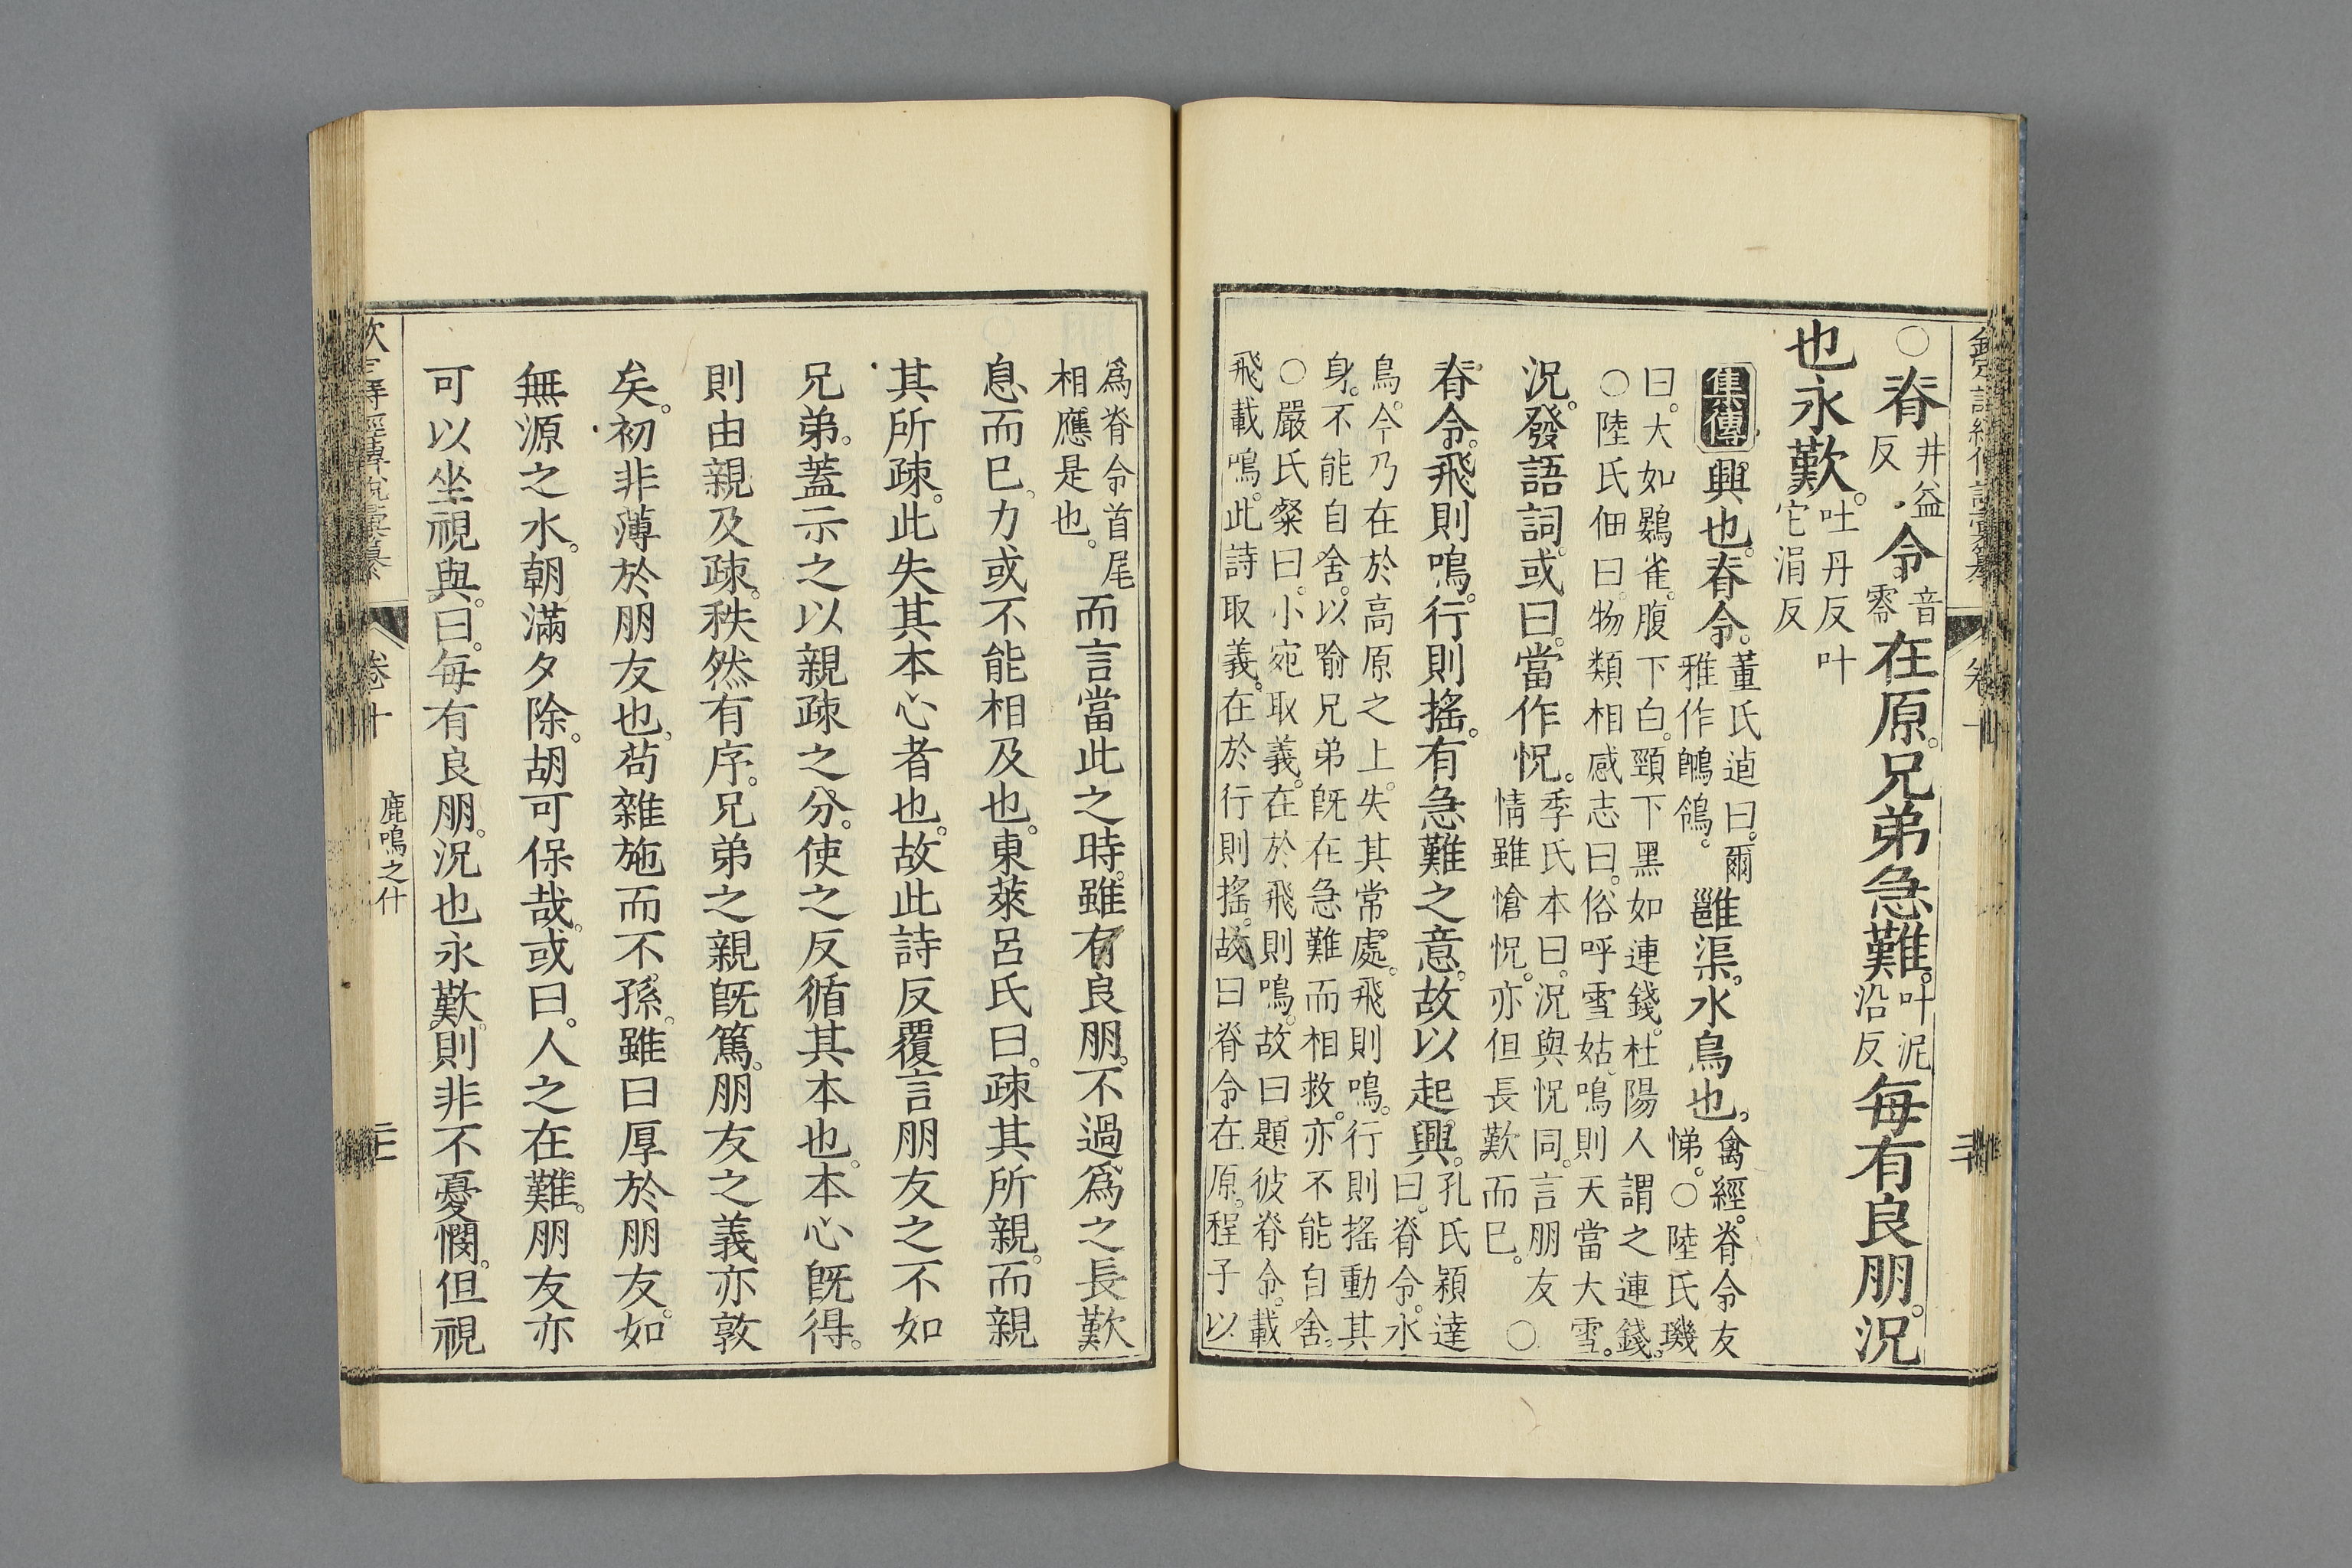 ○脊井益反令音零在原。兄弟急難。叶泥沿反每有良朋。況
也永歎。吐丹反叶它涓反
集傳興也。脊令。董氏逌曰。爾雅作䳭鴒。雝渠。水鳥也。禽經。脊令友悌。○陸氏璣
曰。大如鷃雀。腹下白。頸下黑如連錢。杜陽人謂之連錢。
○陸氏佃曰。物類相感志曰。俗呼雪姑。鳴則天當大雪。
況。發語詞。或曰。當作怳。季氏本曰。況與怳同。言朋友情雖愴怳。亦但長歎而已。○
脊令。飛則鳴。行則搖。有急難之意。故以起興。孔氏穎達曰。脊令。水
鳥。今乃在於高原之上。失其常處。飛則鳴。行則搖動其
身。不能自舍。以喻兄弟既在急難而相救。亦不能自舍。
○嚴氏粲曰。小宛取義。在於飛則鳴。故曰題彼脊令。載
飛載鳴。此詩取義。在於行則搖。故曰脊令在原。程子以
爲脊令首尾相應是也。而言當此之時。雖有良朋。不過爲之長歎
息而已。力或不能相及也。東萊呂氏曰。疎其所親。而親
其所疎。此失其本心者也。故此詩反覆言朋友之不如
兄弟。蓋示之以親疎之分。使之反循其本也。本心旣得。
則由親及疎。秩然有序。兄弟之親旣篤。朋友之義亦敦
矣。初非薄於朋友也。苟雜施而不孫。雖曰厚於朋友。如
無源之水。朝滿夕除。胡可保哉。或曰。人之在難。朋友亦
可以坐視與。曰。每有良朋。況也永歎。則非不憂憫。但視
卷十
鹿鳴之什